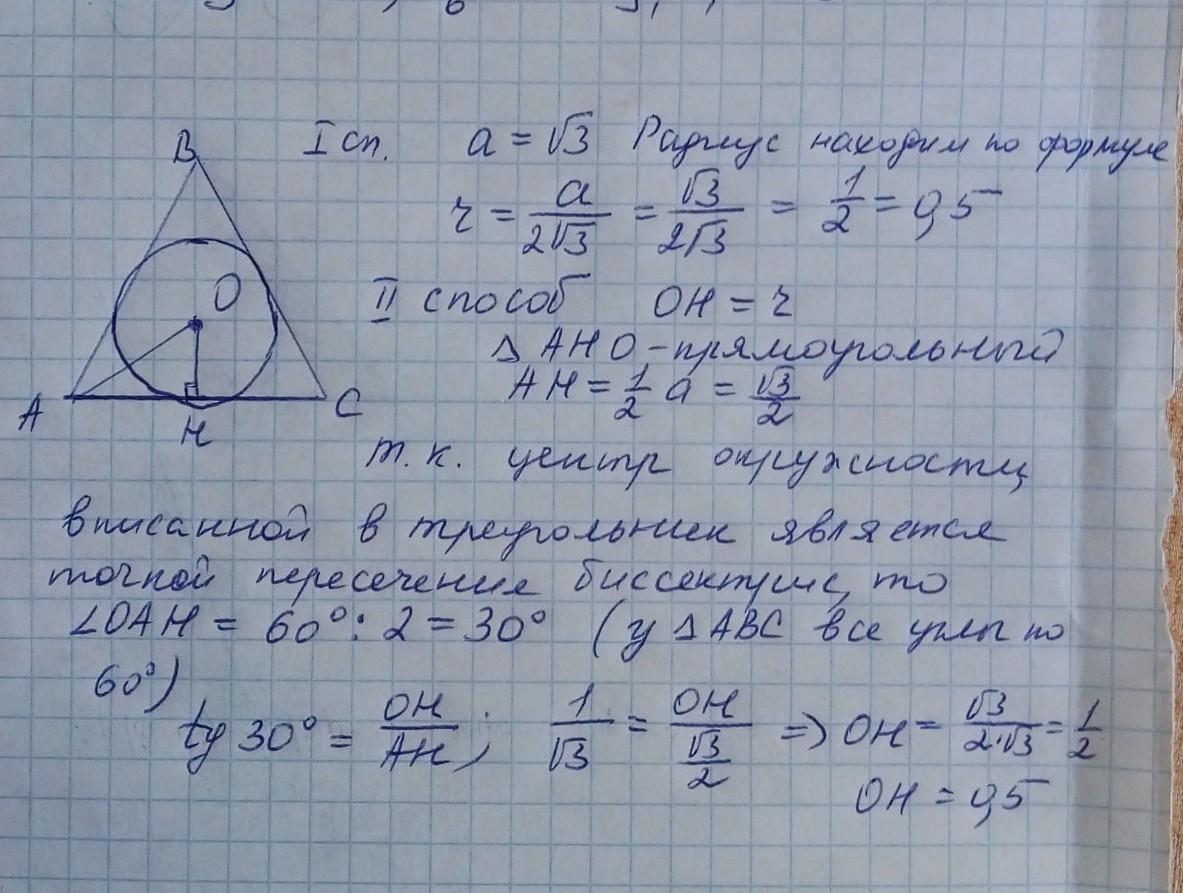 I сп. a = √3 Радиус находим по формуле
r = a/2√3 = √3/2√3 = 1/2 = 0,5
II способ OH = r
△ AHO - прямоугольный
AH = 1/2 a = √3/2
т.к. центр окружности,
вписанной в треугольник является
точкой пересечения биссектрис, то
∠OAH = 60°: 2 = 30° (у △ABC все углы по
60°)
tg 30° = OH/AH; 1/√3 = OH/(√3/2) => OH = √3/2·√3 = 1/2
OH = 0,5
B
O
A
H
C